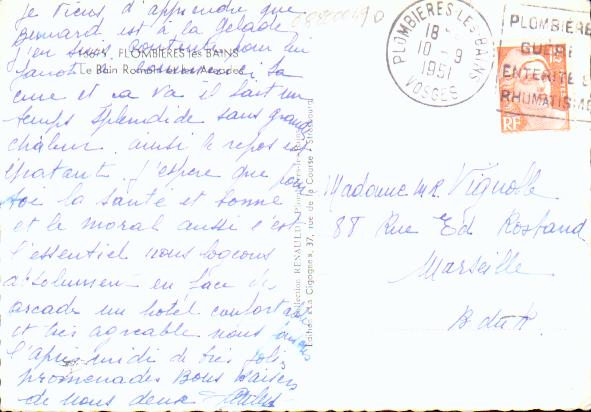 je viens d'apprendre que
Bernard est à la
j'en suis contente pour lui
PLOMBIÈRES les BAINS
Le Bain Romain et les Arcades
ici la
cure et sa va il fait un
temps splendide sans grande
chaleur ainsi le repos est
épatant. J'espère que pour
toi la santé est bonne
et le moral aussi c'est
l'essentiel nous logeons
absolument en face les
arcades un hôtel confortable
et très agréable nous faisons
l'après midi de très jolies
promenades Bons Baisers
de nous deux
Collection RENAULD, Plombières-les-Bains
Edition "La Cigogne", 37, rue de la Course - Strasbourg
PLOMBIERES LES BAINS
18
10 - 9
1951
VOSGES
PLOMBIÈRE
GUÉRI
ENTÉRITE
RHUMATISME
RF
Madame M R. Vignolle
88 Rue Ed Rostand
Marseille
B du R.